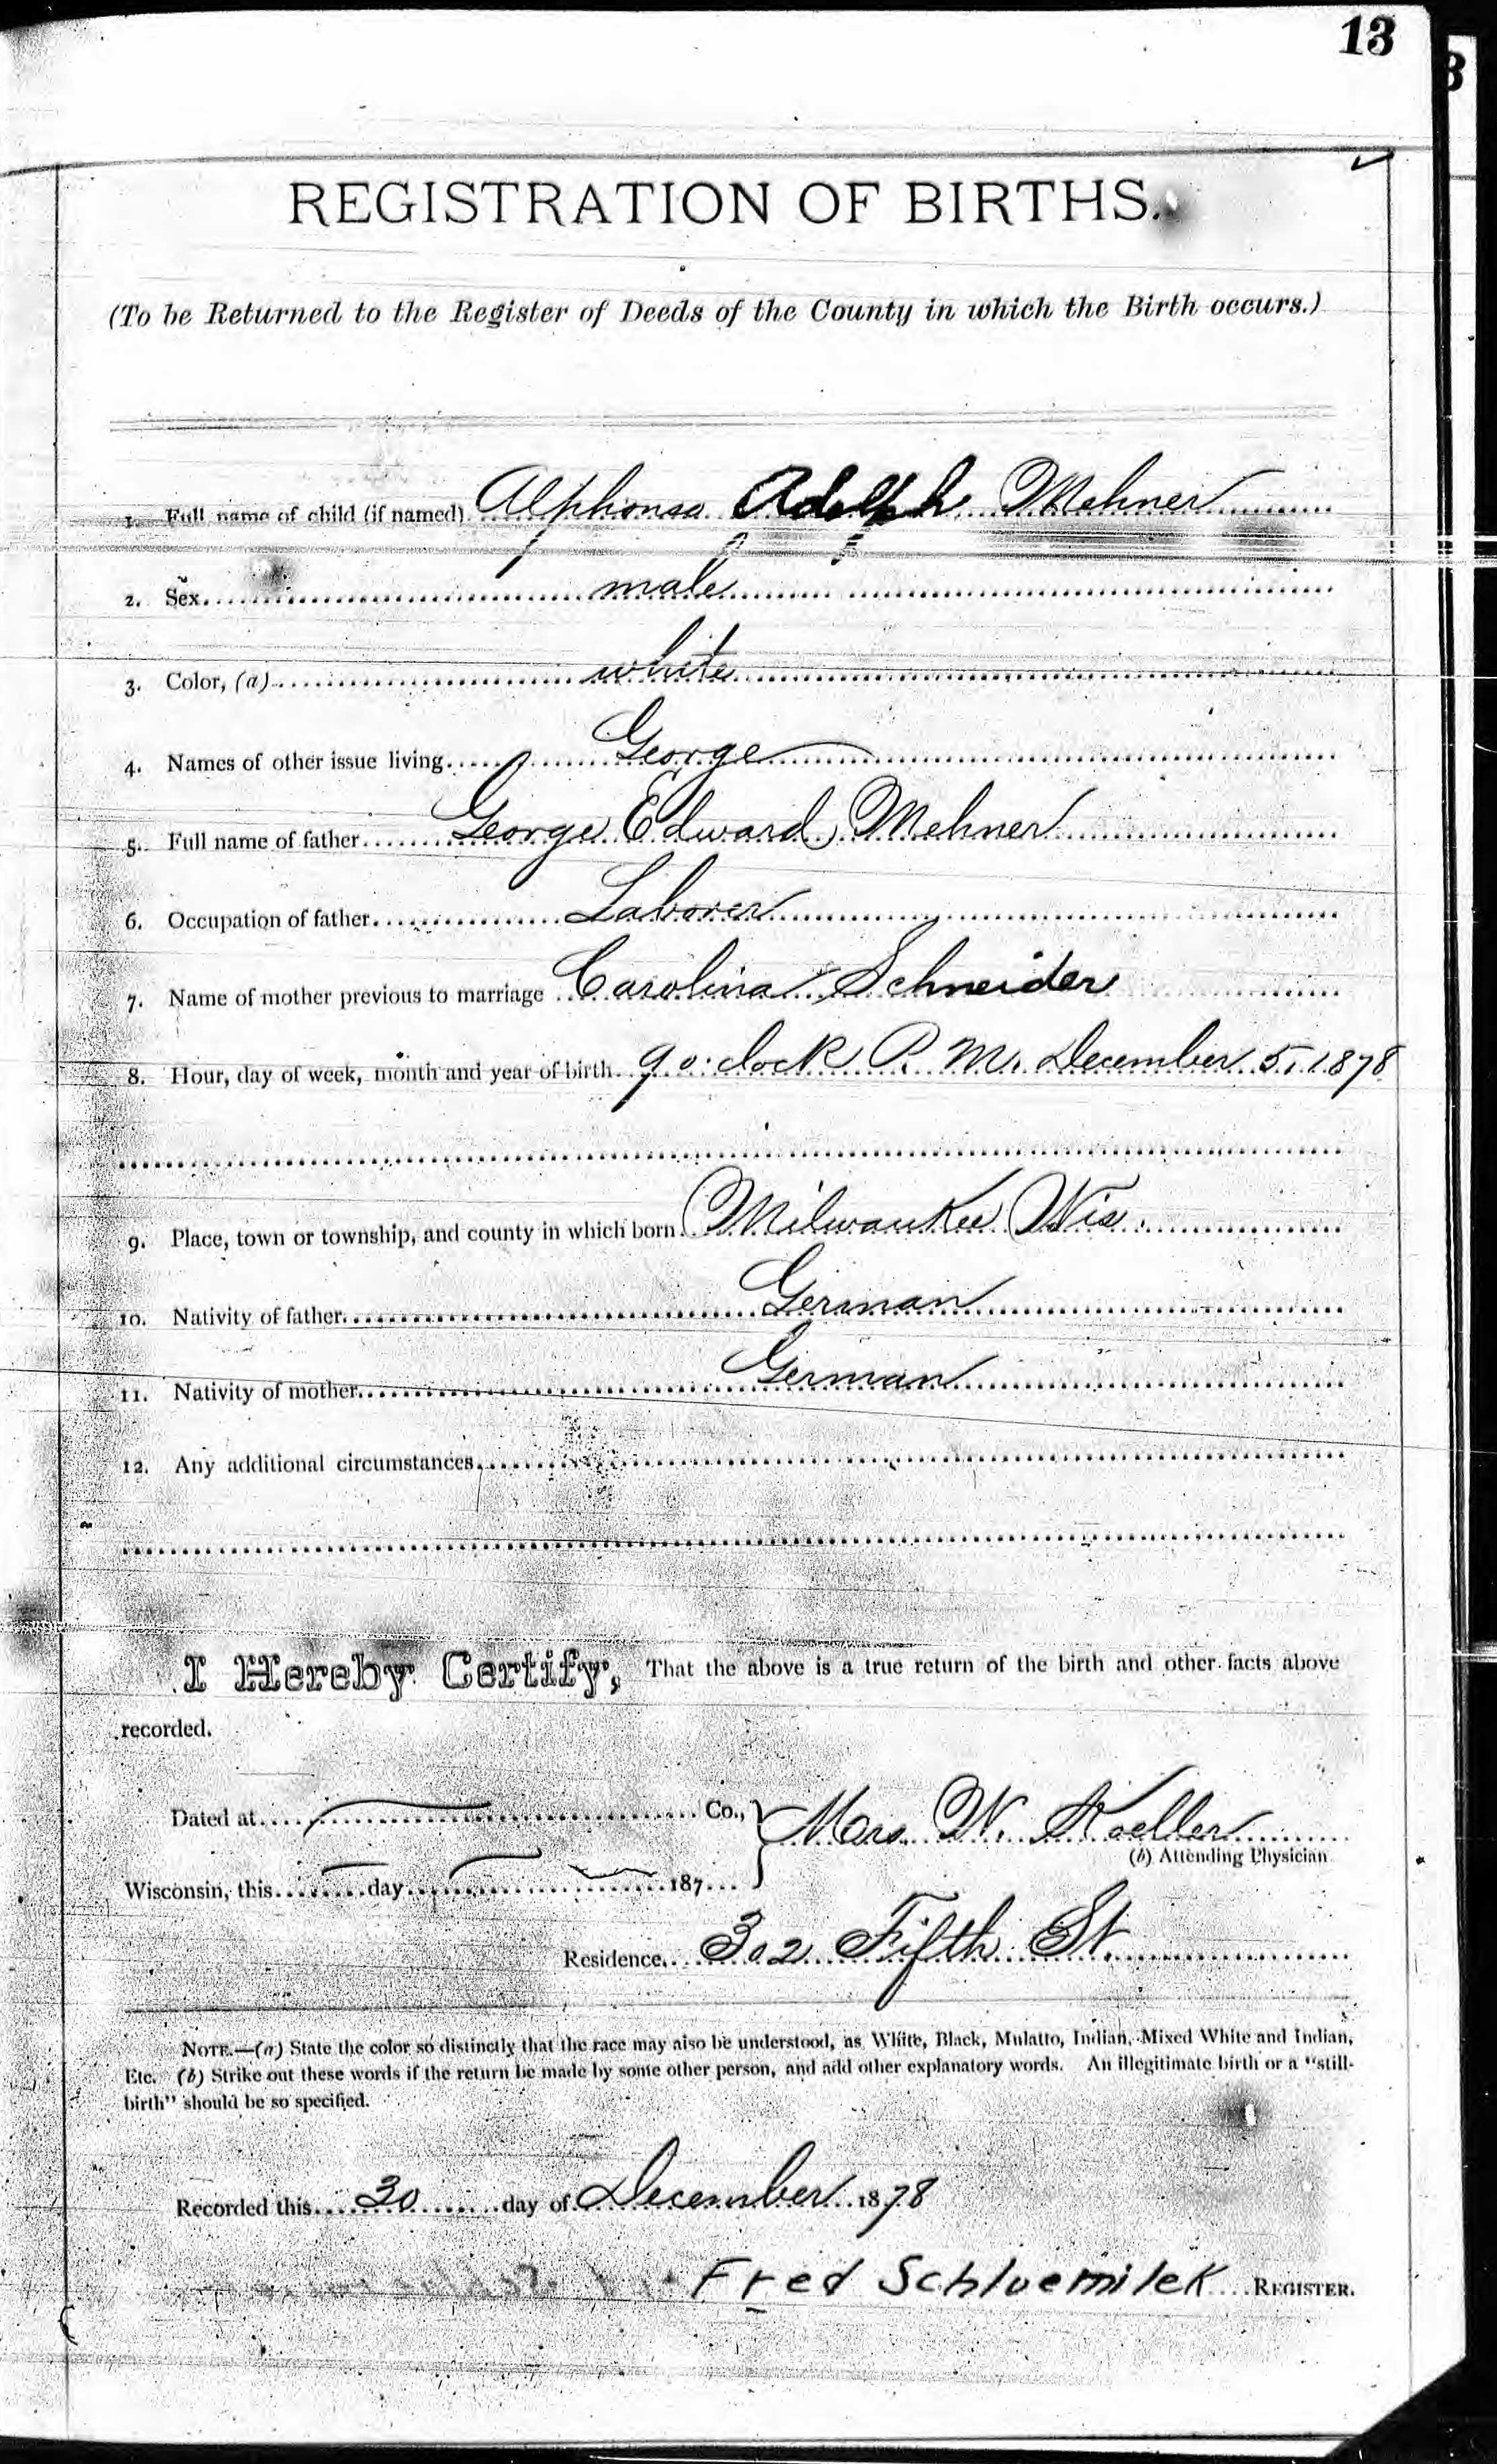 13
REGISTRATION OF BIRTHS.
(To be Returned to the Register of Deeds of the County in which the Birth occurs.)
1. Full name of child (if named) Alphonsa Adolph Mehner
2. Sex male
3. Color, (a) white
4. Names of other issue living George
5. Full name of father George Edward Mehner
6. Occupation of father Laborer
7. Name of mother previous to marriage Carolina Schneider
8. Hour, day of week, month and year of birth 9 o'clock P. M. December 5, 1878
9. Place, town or township, and county in which born Milwaukee Wis.
10. Nativity of father German
11. Nativity of mother German
12. Any additional circumstances
I Hereby Certify, That the above is a true return of the birth and other facts above
recorded.
Dated at Co., Mrs W. Koeller
(b) Attending Physician
Wisconsin, this day 187
Residence 302 Fifth St.
NOTE.—(a) State the color so distinctly that the race may also be understood, as White, Black, Mulatto, Indian, Mixed White and Indian,
Etc. (b) Strike out these words if the return be made by some other person, and add other explanatory words. An illegitimate birth or a "still-
birth" should be so specified.
Recorded this 30 day of December 1878
Fred Schluemilek REGISTER.